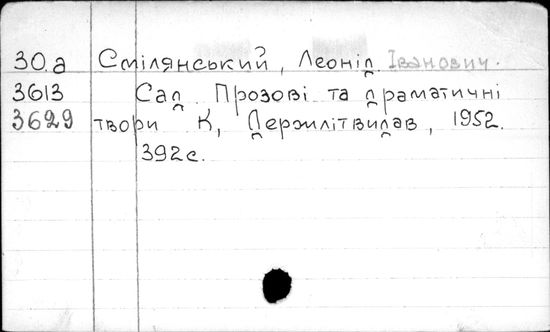 30.а Смілянський, Леонід Іванович.
3613 Сад Прозові та драматичні
3629 твори К, Держлітвидав, 1952.
392с.